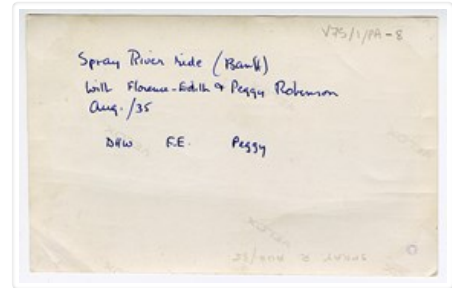 V75/1/PA-8
Spray River ride (Banff)
with Florence-Edith & Peggy Robinson
Aug./35
DHW F.E. Peggy
VELOX
SPRAY R AUG/35